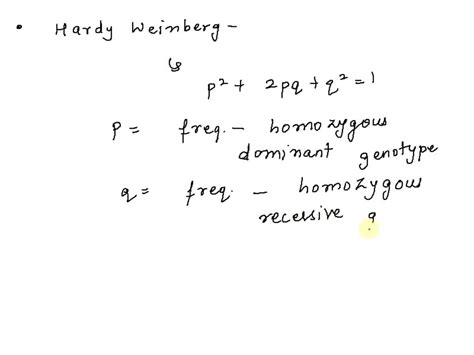 • Hardy Weinberg -
↳ p² + 2pq + q² = 1
p = freq. - homozygous
dominant genotype
q = freq. - homozygous
recessive g